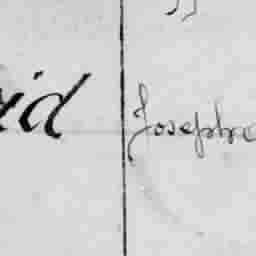 id Josephe